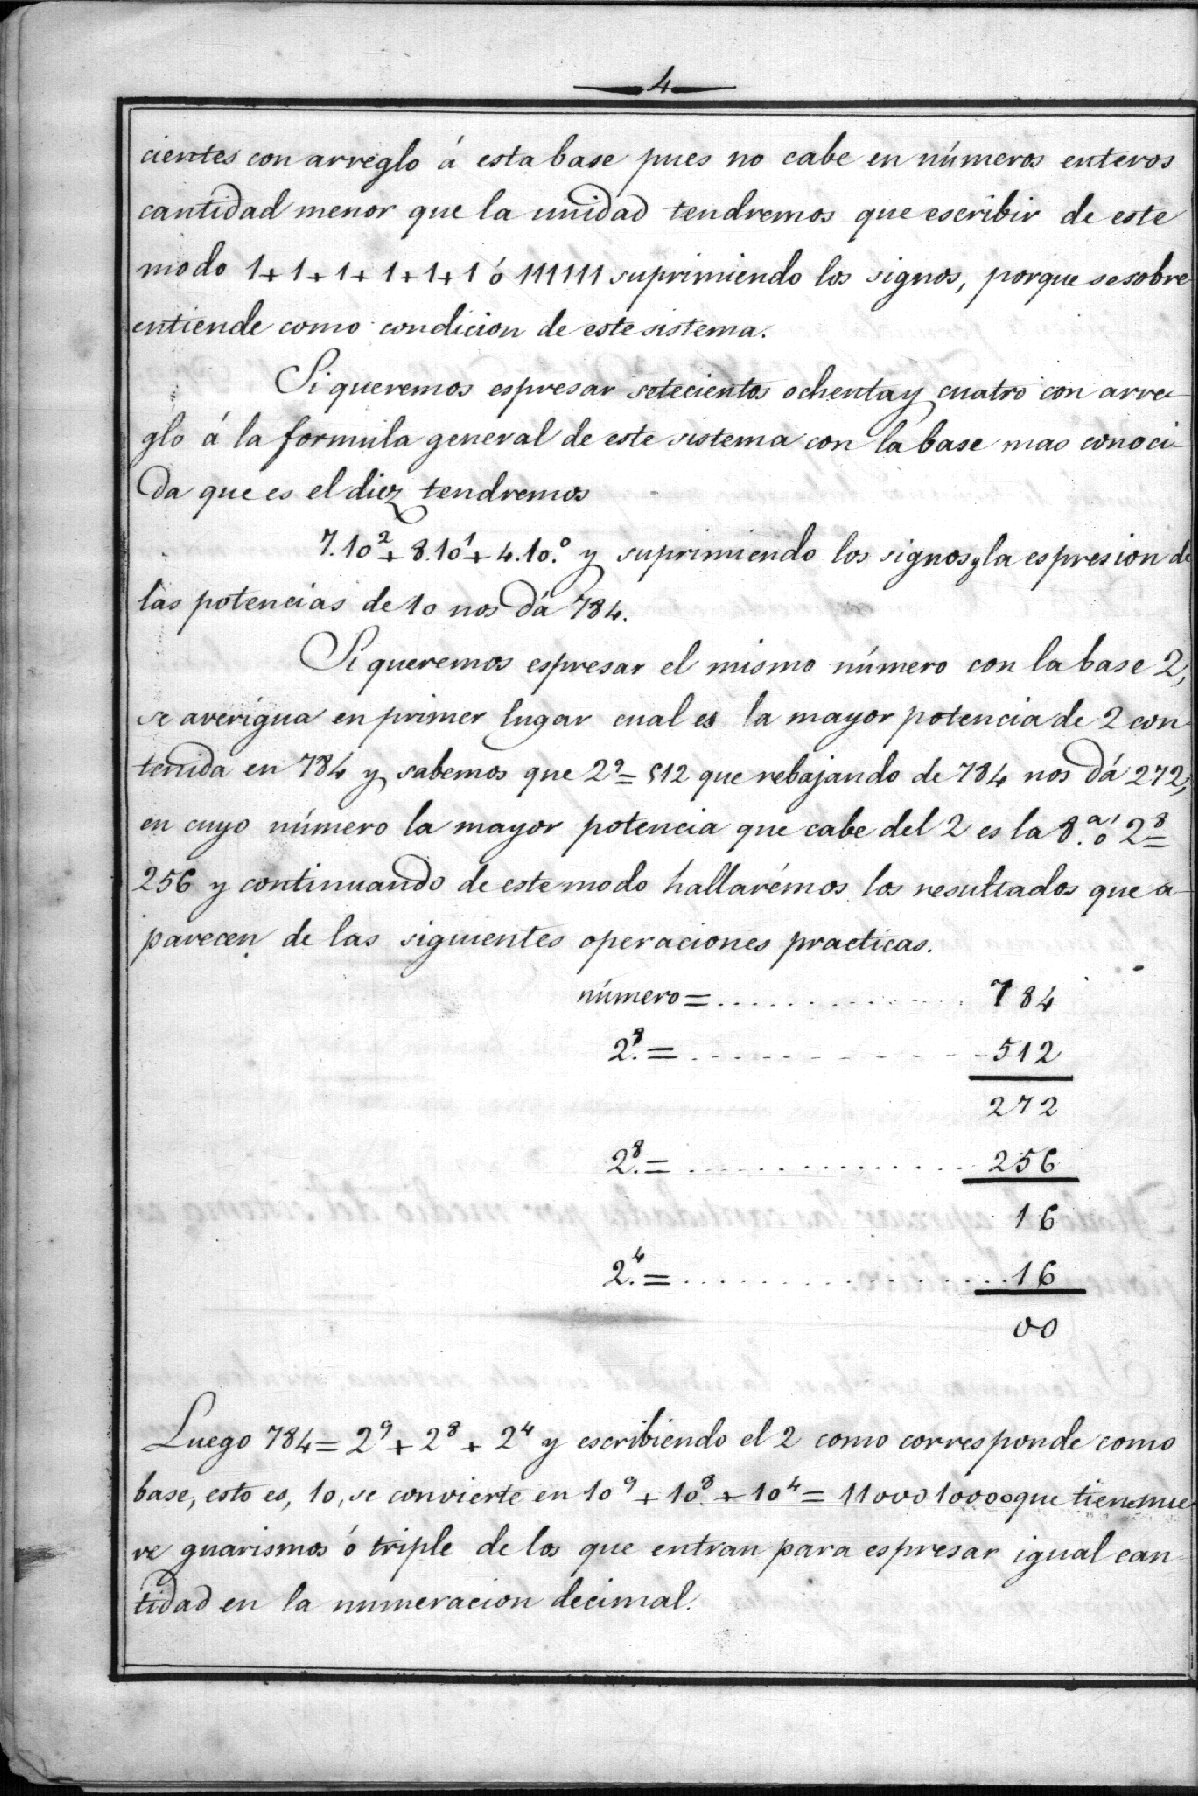 4
cientes con arreglo á esta base pues no cabe en números enteros
cantidad menor que la unidad tendremos que escribir de este
modo 1+1+1+1+1+1 ó 111111 suprimiendo los signos, porque se sobre
entiende como condicion de este sistema.
Si queremos espresar setecientos ochenta y cuatro con arre-
glo á la formula general de este sistema con la base mas conoci-
da que es el diez tendremos
7.10²+8.10¹+4.10.⁰ y suprimiendo los signos y la espresion de
las potencias de 10 nos dá 784.
Si queremos espresar el mismo número con la base 2,
se averigua en primer lugar cual es la mayor potencia de 2 con
tenida en 784 y sabemos que 2⁹=512 que rebajando de 784 nos dá 272,
en cuyo número la mayor potencia que cabe del 2 es la 8.ª ó 2⁸=
256 y continuando de este modo hallarémos los resultados que a-
parecen de las siguientes operaciones practicas.
número=.............. 784
2.⁹=.............. 512
272
2.⁸=.............. 256
16
2.⁴=.............. 16
00
Luego 784=2⁹+2⁸+2⁴ y escribiendo el 2 como corresponde como
base, esto es, 10, se convierte en 10⁹+10⁸+10⁴=1100010000 que tiene nue
ve guarismos ó triple de los que entran para espresar igual can
tidad en la numeracion decimal.